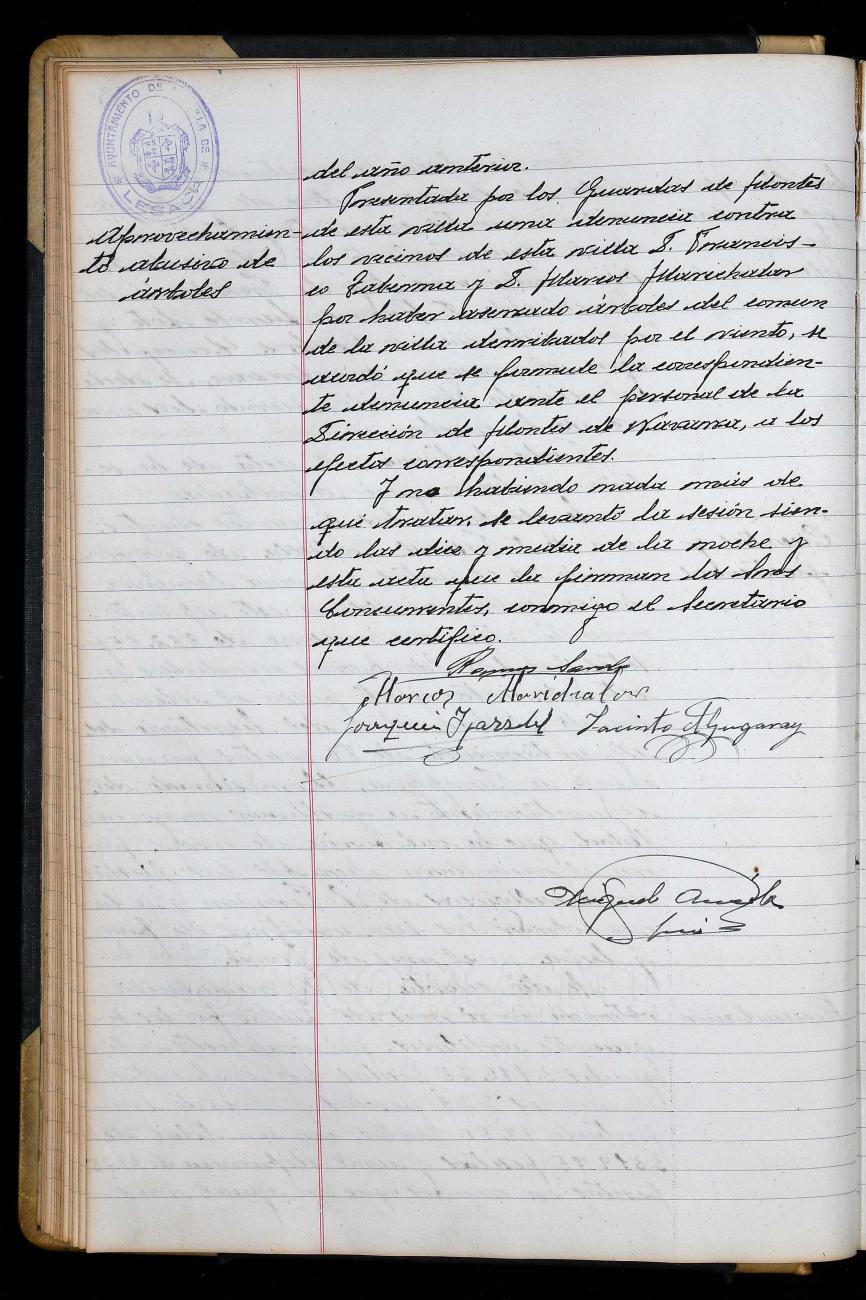 AYUNTAMIENTO DE LA VILLA DE
LESACA
del año anterior.
Presentada por los Guardas de Montes
Aprovechamien-
to abusivo de
árboles
de esta villa una denuncia contra
los vecinos de esta villa D. Francis-
co Taberna y D. Marcos Marichalar
por haber aserrado árboles del comun
de la villa derribados por el viento, se
acordó que se formule la correspondien-
te denuncia ante el personal de la
Dirección de Montes de Navarra, a los
efectos correspondientes.
Y no habiendo nada más de
que tratar, se levantó la sesión sien-
do las diez y media de la noche y
esta acta que la firman los Sres
Concurrentes, conmigo el Secretario
que certifico.
Marcos Marichalar
Joaquin
Jacinto
Miguel